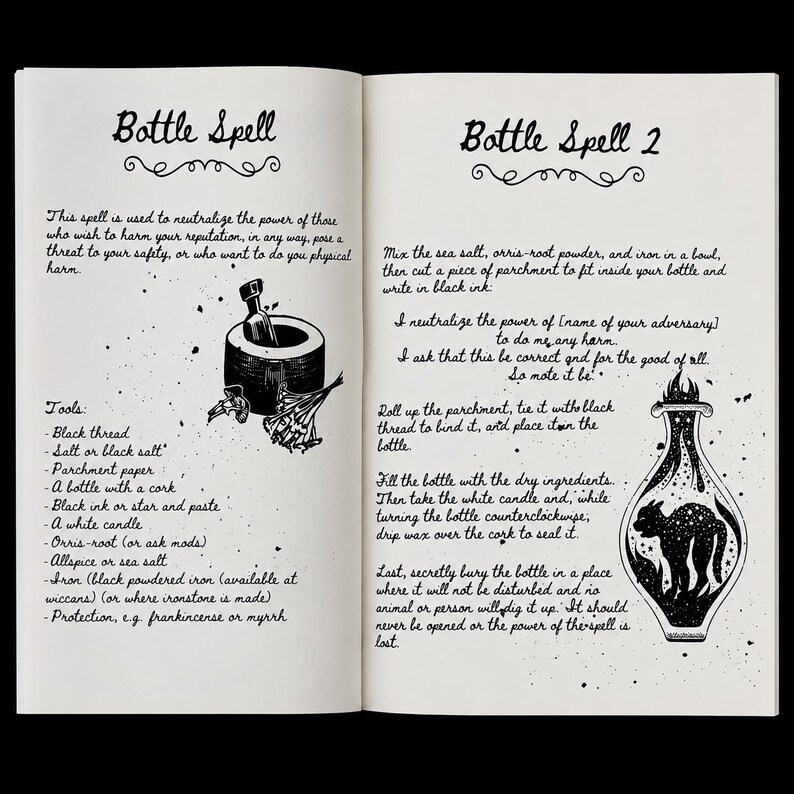 Bottle Spell
This spell is used to neutralize the power of those
who wish to harm your reputation, in any way, pose a
threat to your safety, or who want to do you physical
harm.
Tools:
- Black thread
- Salt or black salt
- Parchment paper
- A bottle with a cork
- Black ink or star and paste
- A white candle
- Orris-root (or ask mods)
- Allspice or sea salt
- Iron (black powdered iron (available at
wiccans) (or where ironstone is made)
- Protection, e.g. frankincense or myrrh
Bottle Spell 2
Mix the sea salt, orris-root powder, and iron in a bowl,
then cut a piece of parchment to fit inside your bottle and
write in black ink:
I neutralize the power of [name of your adversary]
to do me any harm.
I ask that this be correct and for the good of all.
So mote it be.
Roll up the parchment, tie it with black
thread to bind it, and place it in the
bottle.
Fill the bottle with the dry ingredients.
Then take the white candle and, while
turning the bottle counterclockwise,
drip wax over the cork to seal it.
Last, secretly bury the bottle in a place
where it will not be disturbed and no
animal or person will dig it up. It should
never be opened or the power of the spell is
lost.